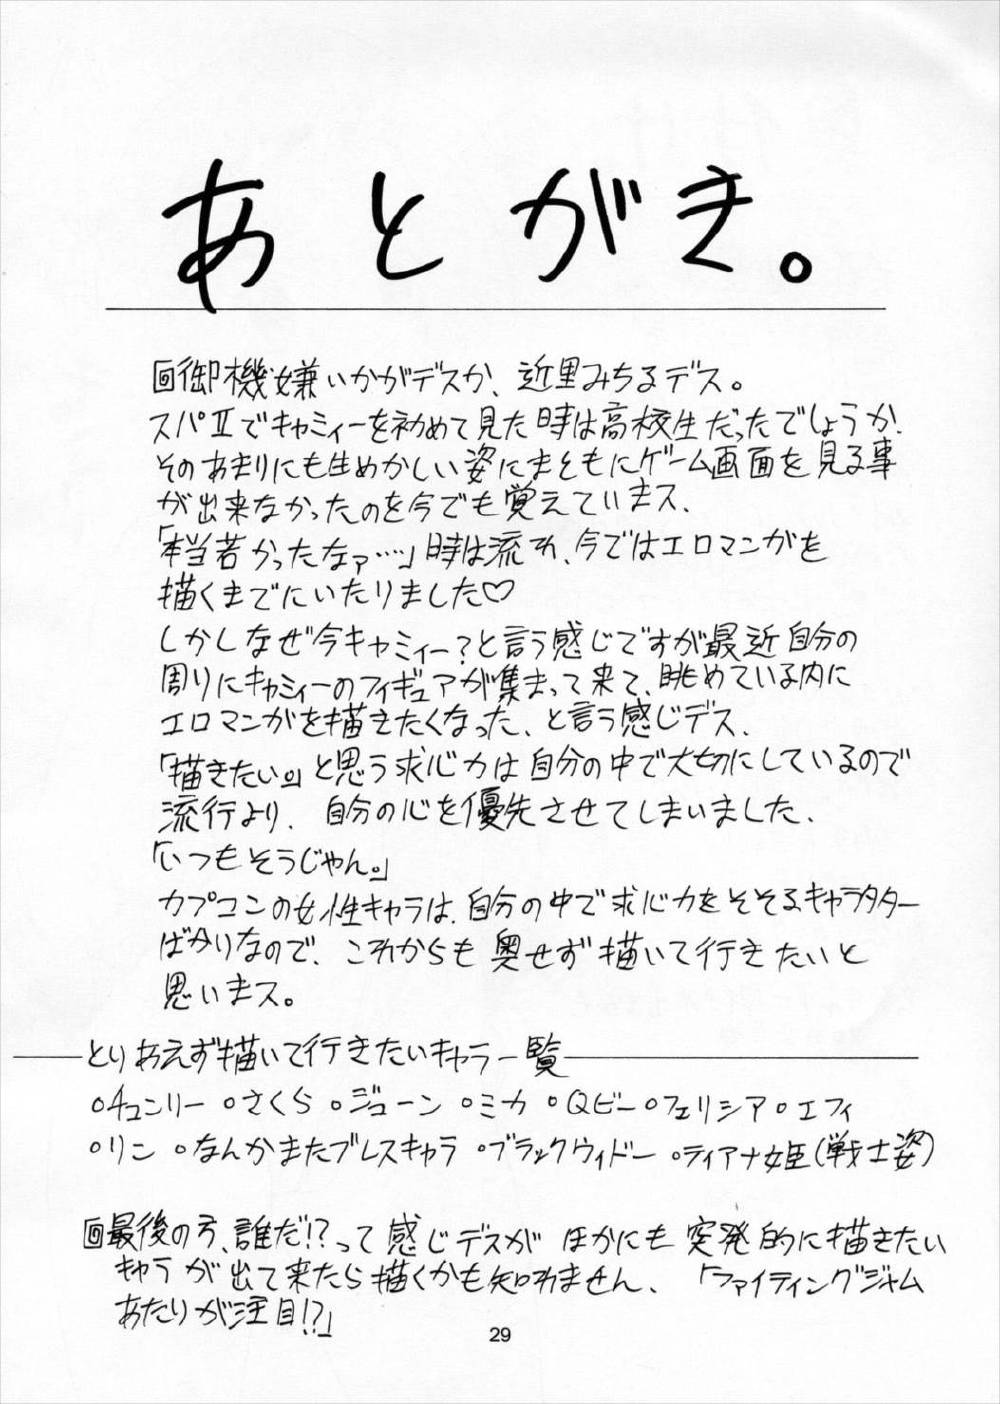 あとがき。
回御機嫌いかがデスか、近里みちるデス。
スパⅡでキャミィーを初めて見た時は高校生だったでしょうか、
そのあまりにも生めかしい姿にまともにゲーム画面を見る事
が出来なかったのを今でも覚えていまス、
「本当若かったなァ…」時は流れ、今ではエロマンガを
描くまでにいたりました♡
しかしなぜ今キャミィー?と言う感じですが最近自分の
周りにキャミィーのフィギュアが集まって来て、眺めている内に
エロマンガを描きたくなった、と言う感じデス、
「描きたい。」と思う求心力は自分の中で大切にしているので
流行より、自分の心を優先させてしまいました、
「いつもそうじゃん。」
カプコンの女性キャラは、自分の中で求心力をそそるキャラクター
ばかりなので、これからも奥せず描いて行きたいと
思いまス。
とりあえず描いて行きたいキャラ一覧
○チュンリー ○さくら ○ジューン ○ミカ ○Qビー ○フェリシア ○エフィ
○リン ○なんかまたブレスキャラ ○ブラックウィドー ○ティアナ姫(戦士姿)
回最後の方、誰だ!?って感じデスが ほかにも突発的に描きたい
キャラが出て来たら描くかも知れません、「ファイティングジャム
あたりが注目!?」
29